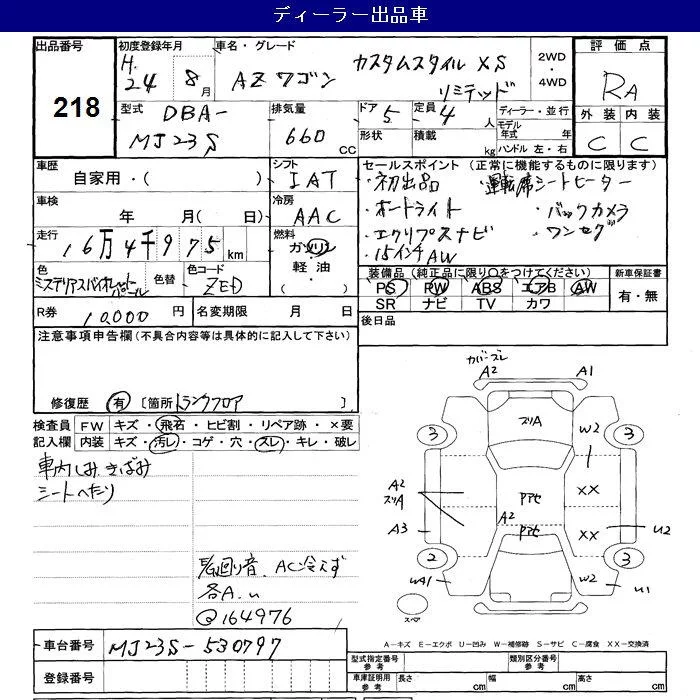 ディーラー出品車
出品番号
218
初度登録年月
H.
24 8月
車名・グレード
AZワゴン
カスタムスタイル XS
リミテッド
2WD
・
4WD
評価点
RA
外装 内装
C C
型式
DBA-
MJ23S
排気量
660
CC
ドア 5
形状
定員 4 人
積載 kg
ディーラー・並行
モデル年式 年
ハンドル 左・右
車歴
自家用・( )
シフト
IAT
車検
年 月( 日)
冷房
AAC
走行
16万4千975 km
燃料
ガソリン
軽油・
( )
色
ミステリアスバイオレットパール
色替
色コード
ZED
R券 10,000 円
名変期限 月 日
セールスポイント (正常に機能するものに限ります)
・初出品 ・運転席シートヒーター
・オートライト ・バックカメラ
・エクリプスナビ ・ワンセグ
・15インチAW
装備品 (純正品に限り○をつけてください)
PS PW ABS エアB AW
SR ナビ TV カワ
新車保証書
有・無
後日品
注意事項申告欄(不具合内容等は具体的に記入して下さい)
修復歴 有 [箇所 トランクフロア ]
検査員記入欄
FW キズ・飛石・ヒビ割・リペア跡・×要
内装 キズ・汚レ・コゲ・穴・スレ・キレ・破レ
車内しみ、きばみ
シートへたり
回り音、AC冷えず
各A.U
@164976
車台番号 MJ23S-530797
登録番号
カバーズレ
A2 A1
ズリA
3 W2 3
A2
ズリA
Pアセ
XX
A2
A3
Pアセ
XX
U2
2 3
UA1 W2 U1
スペア
A－キズ E－エクボ U－凹み W－補修跡 S－サビ C－腐食 XX－交換済
型式指定番号
参考
類別区分番号
参考
車庫証明用
参考
長さ cm
幅 cm
高さ cm